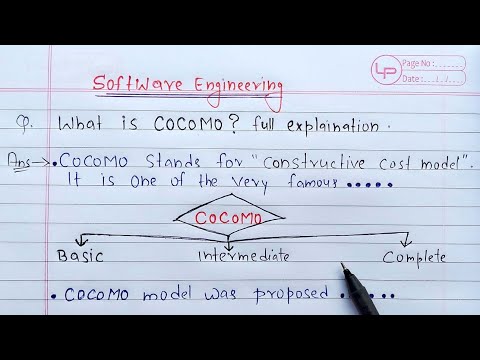 LP
Page No:......
Date: .../.../...
Software Engineering
Q. What is COCOMO? full explaination.
Ans→ • COCOMO Stands for "Constructive cost model".
It is one of the very famous •••••
COCOMO
Basic Intermediate Complete
• COCOMO model was proposed ••••••